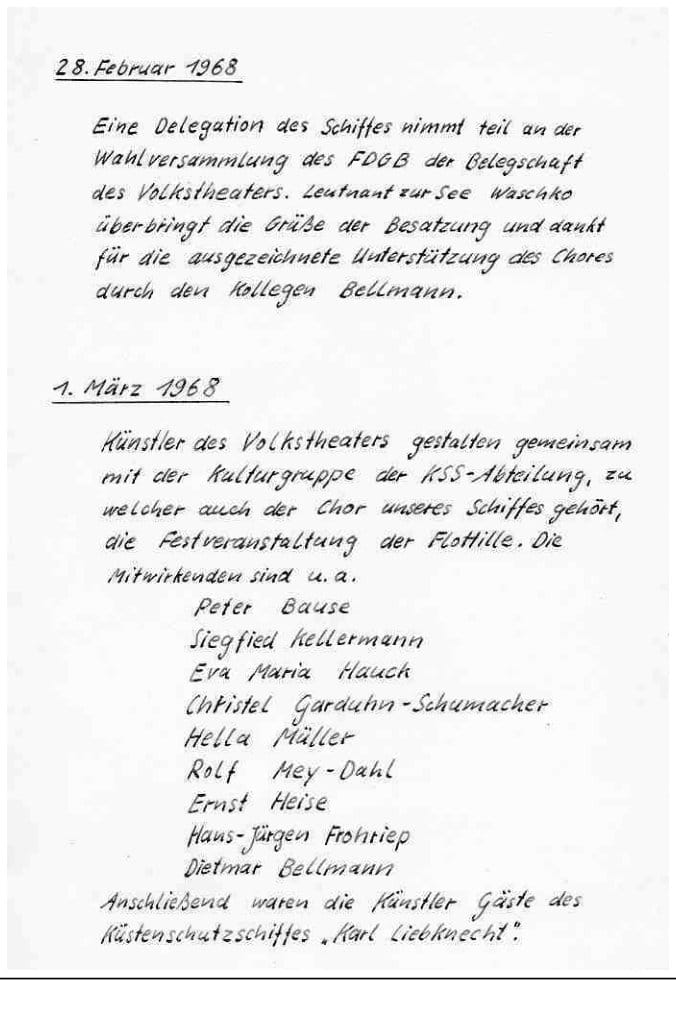 28. Februar 1968
Eine Delegation des Schiffes nimmt teil an der
Wahlversammlung des FDGB der Belegschaft
des Volkstheaters. Leutnant zur See Waschko
überbringt die Grüße der Besatzung und dankt
für die ausgezeichnete Unterstützung des Chores
durch den Kollegen Bellmann.
1. März 1968
Künstler des Volkstheaters gestalten gemeinsam
mit der Kulturgruppe der KSS-Abteilung, zu
welcher auch der Chor unseres Schiffes gehört,
die Festveranstaltung der Flottille. Die
Mitwirkenden sind u. a.
Peter Bause
Siegfied Kellermann
Eva Maria Hauck
Christel Garduhn-Schumacher
Hella Müller
Rolf Mey-Dahl
Ernst Heise
Hans-Jürgen Frohriep
Dietmar Bellmann
Anschließend waren die Künstler Gäste des
Küstenschutzschiffes „Karl Liebknecht".